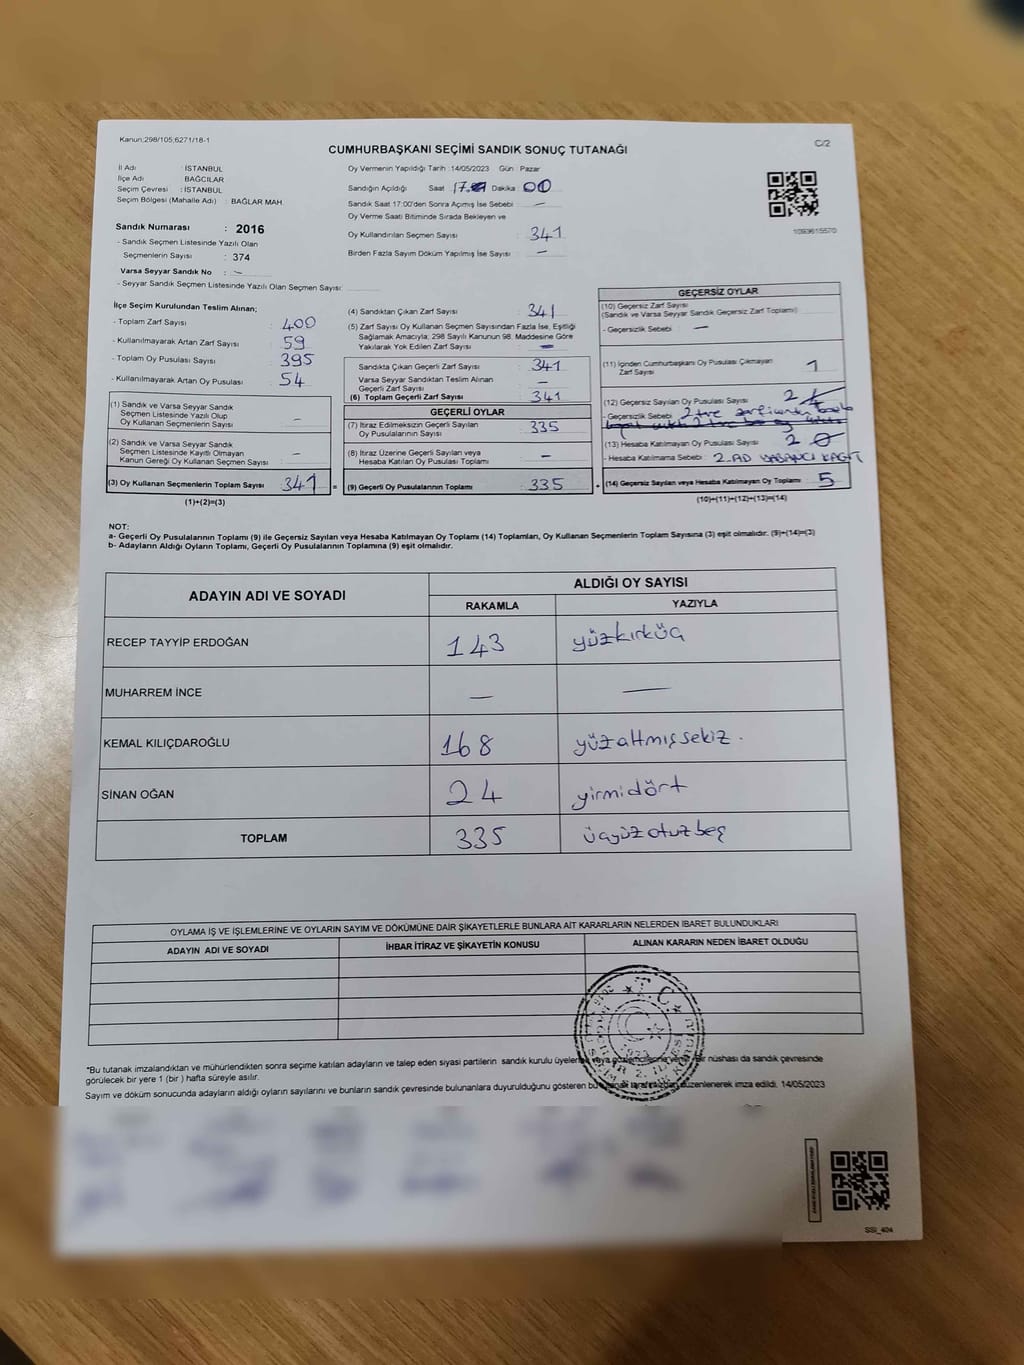 Kanun:298/105,6271/18-1
C/2
CUMHURBAŞKANI SEÇİMİ SANDIK SONUÇ TUTANAĞI
İl Adı : İSTANBUL
İlçe Adı : BAĞCILAR
Seçim Çevresi : İSTANBUL
Seçim Bölgesi (Mahalle Adı) : BAĞLAR MAH.
Sandık Numarası : 2016
- Sandık Seçmen Listesinde Yazılı Olan
Seçmenlerin Sayısı : 374
Varsa Seyyar Sandık No : -
- Seyyar Sandık Seçmen Listesinde Yazılı Olan Seçmen Sayısı:
Oy Vermenin Yapıldığı Tarih :14/05/2023 Gün : Pazar
Sandığın Açıldığı Saat 17. Dakika 00
Sandık Saat 17:00'den Sonra Açımış İse Sebebi : -
Oy Verme Saati Bitiminde Sırada Bekleyen ve
Oy Kullandırılan Seçmen Sayısı : 341
Birden Fazla Sayım Döküm Yapılmış İse Sayısı : -
1093615570
İlçe Seçim Kurulundan Teslim Alınan;
- Toplam Zarf Sayısı : 400
- Kullanılmayarak Artan Zarf Sayısı : 59
- Toplam Oy Pusulası Sayısı : 395
- Kullanılmayarak Artan Oy Pusulası : 54
(1) Sandık ve Varsa Seyyar Sandık
Seçmen Listesinde Yazılı Olup
Oy Kullanan Seçmenlerin Sayısı : -
(2) Sandık ve Varsa Seyyar Sandık
Seçmen Listesinde Kayıtlı Olmayan
Kanun Gereği Oy Kullanan Seçmen Sayısı : -
(3) Oy Kullanan Seçmenlerin Toplam Sayısı : 341
(1)+(2)=(3)
(4) Sandıktan Çıkan Zarf Sayısı : 341
(5) Zarf Sayısı Oy Kullanan Seçmen Sayısından Fazla İse, Eşitliği
Sağlamak Amacıyla; 298 Sayılı Kanunun 98. Maddesine Göre
Yakılarak Yok Edilen Zarf Sayısı : -
Sandıkta Çıkan Geçerli Zarf Sayısı : 341
Varsa Seyyar Sandıktan Teslim Alınan
Geçerli Zarf Sayısı : -
(6) Toplam Geçerli Zarf Sayısı : 341
GEÇERLİ OYLAR
(7) İtiraz Edilmeksizin Geçerli Sayılan
Oy Pusulalarının Sayısı : 335
(8) İtiraz Üzerine Geçerli Sayılan veya
Hesaba Katılan Oy Pusulası Toplamı : -
= (9) Geçerli Oy Pusulalarının Toplamı : 335
GEÇERSİZ OYLAR
(10) Geçersiz Zarf Sayısı
(Sandık ve Varsa Seyyar Sandık Geçersiz Zarf Toplamı)
- Geçersizlik Sebebi : -
(11) İçinden Cumhurbaşkanı Oy Pusulası Çıkmayan
Zarf Sayısı : 1
(12) Geçersiz Sayılan Oy Pusulası Sayısı : 2
- Geçersizlik Sebebi :
(13) Hesaba Katılmayan Oy Pusulası Sayısı : 2
- Hesaba Katılmama Sebebi : 2.AD YABANCI KAGIT
+ (14) Geçersiz Sayılan veya Hesaba Katılmayan Oy Toplamı : 5
(10)+(11)+(12)+(13)=(14)
NOT:
a- Geçerli Oy Pusulalarının Toplamı (9) ile Geçersiz Sayılan veya Hesaba Katılmayan Oy Toplamı (14) Toplamları, Oy Kullanan Seçmenlerin Toplam Sayısına (3) eşit olmalıdır. (9)+(14)=(3)
b- Adayların Aldığı Oyların Toplamı, Geçerli Oy Pusulalarının Toplamına (9) eşit olmalıdır.
ADAYIN ADI VE SOYADI
ALDIĞI OY SAYISI
RAKAMLA YAZIYLA
RECEP TAYYİP ERDOĞAN 143 yüzkırküç
MUHARREM İNCE - -
KEMAL KILIÇDAROĞLU 168 yüzaltmışsekiz.
SİNAN OĞAN 24 yirmidört
TOPLAM 335 üçyüzotuzbeş
OYLAMA İŞ VE İŞLEMLERİNE VE OYLARIN SAYIM VE DÖKÜMÜNE DAİR ŞİKAYETLERLE BUNLARA AİT KARARLARIN NELERDEN İBARET BULUNDUKLARI
ADAYIN ADI VE SOYADI İHBAR İTİRAZ VE ŞİKAYETİN KONUSU ALINAN KARARIN NEDEN İBARET OLDUĞU
T.C.
*Bu tutanak imzalandıktan ve mühürlendikten sonra seçime katılan adayların ve talep eden siyasi partilerin sandık kurulu üyelerine veya gözlemcilerine verilir bir nüshası da sandık çevresinde
görülecek bir yere 1 (bir) hafta süreyle asılır.
Sayım ve döküm sonucunda adayların aldığı oyların sayılarını ve bunların sandık çevresinde bulunanlara duyurulduğunu gösteren bu tutanak tarafımızdan düzenlenerek imza edildi. 14/05/2023
SSI_404